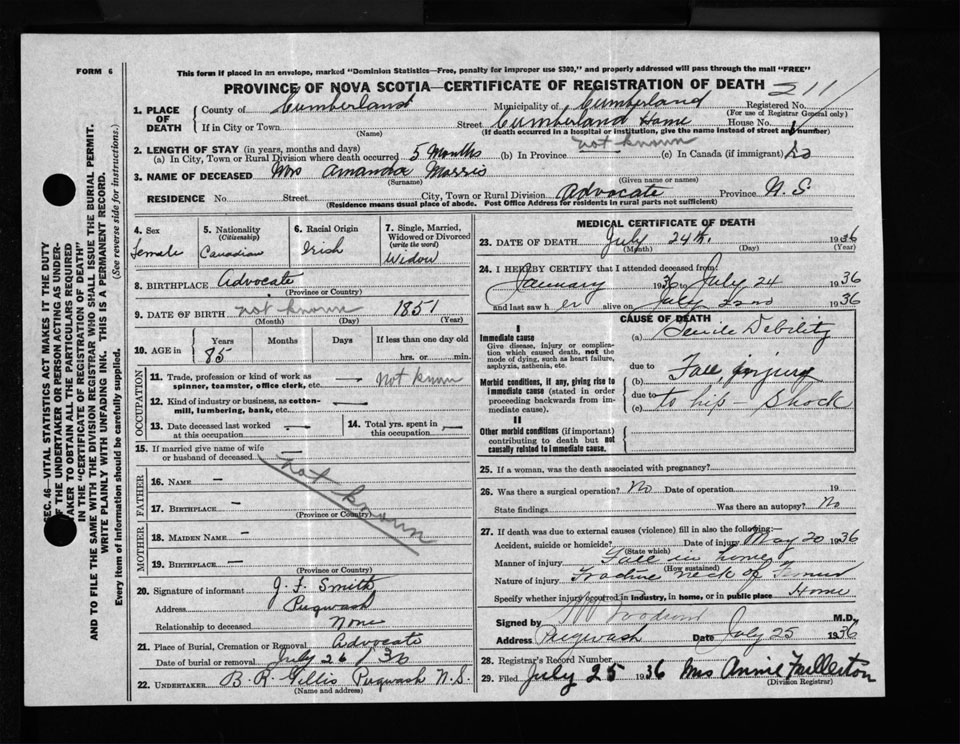 FORM 6
This form if placed in an envelope, marked "Dominion Statistics—Free, penalty for improper use $300," and properly addressed will pass through the mail "FREE"
PROVINCE OF NOVA SCOTIA—CERTIFICATE OF REGISTRATION OF DEATH
211
1. PLACE OF DEATH
County of Cumberland Municipality of Cumberland Registered No.
(For use of Registrar General only)
If in City or Town (Name) Street Cumberland Home House No.
(If death occurred in a hospital or institution, give the name instead of street and number)
2. LENGTH OF STAY (in years, months and days)
(a) In City, Town or Rural Division where death occurred 5 Months (b) In Province not known (c) In Canada (if immigrant)
3. NAME OF DECEASED Mrs Amanda Morris
(Surname) (Given name or names)
RESIDENCE No. Street City, Town or Rural Division Advocate Province N.S.
(Residence means usual place of abode. Post Office Address for residents in rural parts not sufficient)
4. Sex Female
5. Nationality (Citizenship) Canadian
6. Racial Origin Irish
7. Single, Married, Widowed or Divorced (write the word) Widow
8. BIRTHPLACE Advocate
(Province or Country)
9. DATE OF BIRTH not known 1851
(Month) (Day) (Year)
10. AGE in Years Months Days If less than one day old
85 hrs. or min.
OCCUPATION
11. Trade, profession or kind of work as spinner, teamster, office clerk, etc. — Not known
12. Kind of industry or business, as cotton-mill, lumbering, bank, etc. —
13. Date deceased last worked at this occupation —
14. Total yrs. spent in this occupation —
15. If married give name of wife or husband of deceased
not known
FATHER
16. NAME —
17. BIRTHPLACE —
(Province or Country)
MOTHER
18. MAIDEN NAME —
19. BIRTHPLACE —
(Province or Country)
20. Signature of informant J. F. Smith
Address Pugwash
Relationship to deceased None
21. Place of Burial, Cremation or Removal Advocate
Date of burial or removal July 26 / 36
22. UNDERTAKER B. R. Gillis Pugwash N.S.
(Name and address)
MEDICAL CERTIFICATE OF DEATH
23. DATE OF DEATH July 24th. 1936
(Month) (Day) (Year)
24. I HEREBY CERTIFY that I attended deceased from
January 1936 to July 24 1936
and last saw her alive on July 22nd 1936
CAUSE OF DEATH
I
Immediate cause
Give disease, injury or complication which caused death, not the mode of dying, such as heart failure, asphyxia, asthenia, etc.
(a) Senile Debility
due to
Morbid conditions, if any, giving rise to immediate cause (stated in order proceeding backwards from immediate cause).
(b) Fall, injury
due to
(c) to hip — Shock
II
Other morbid conditions (if important) contributing to death but not causally related to immediate cause.
25. If a woman, was the death associated with pregnancy?
26. Was there a surgical operation? No Date of operation 19
State findings Was there an autopsy? No
27. If death was due to external causes (violence) fill in also the following:—
Accident, suicide or homicide? Date of injury May 20 1936
(State which)
Manner of injury Fall in home
(How sustained)
Nature of injury Fracture neck of Femur
Specify whether injury occurred in industry, in home, or in public place Home
Signed by M.D.
Address Pugwash Date July 25 1936
28. Registrar's Record Number
29. Filed July 25 1936 Mrs Annie Fullerton
(Division Registrar)
SEC. 46—VITAL STATISTICS ACT MAKES IT THE DUTY
OF THE UNDERTAKER OR PERSON ACTING AS UNDER-
TAKER TO OBTAIN ALL THE PARTICULARS REQUIRED
IN THE "CERTIFICATE OF REGISTRATION OF DEATH"
AND TO FILE THE SAME WITH THE DIVISION REGISTRAR WHO SHALL ISSUE THE BURIAL PERMIT.
WRITE PLAINLY WITH UNFADING INK. THIS IS A PERMANENT RECORD.
Every item of Information should be carefully supplied. (See reverse side for instructions.)